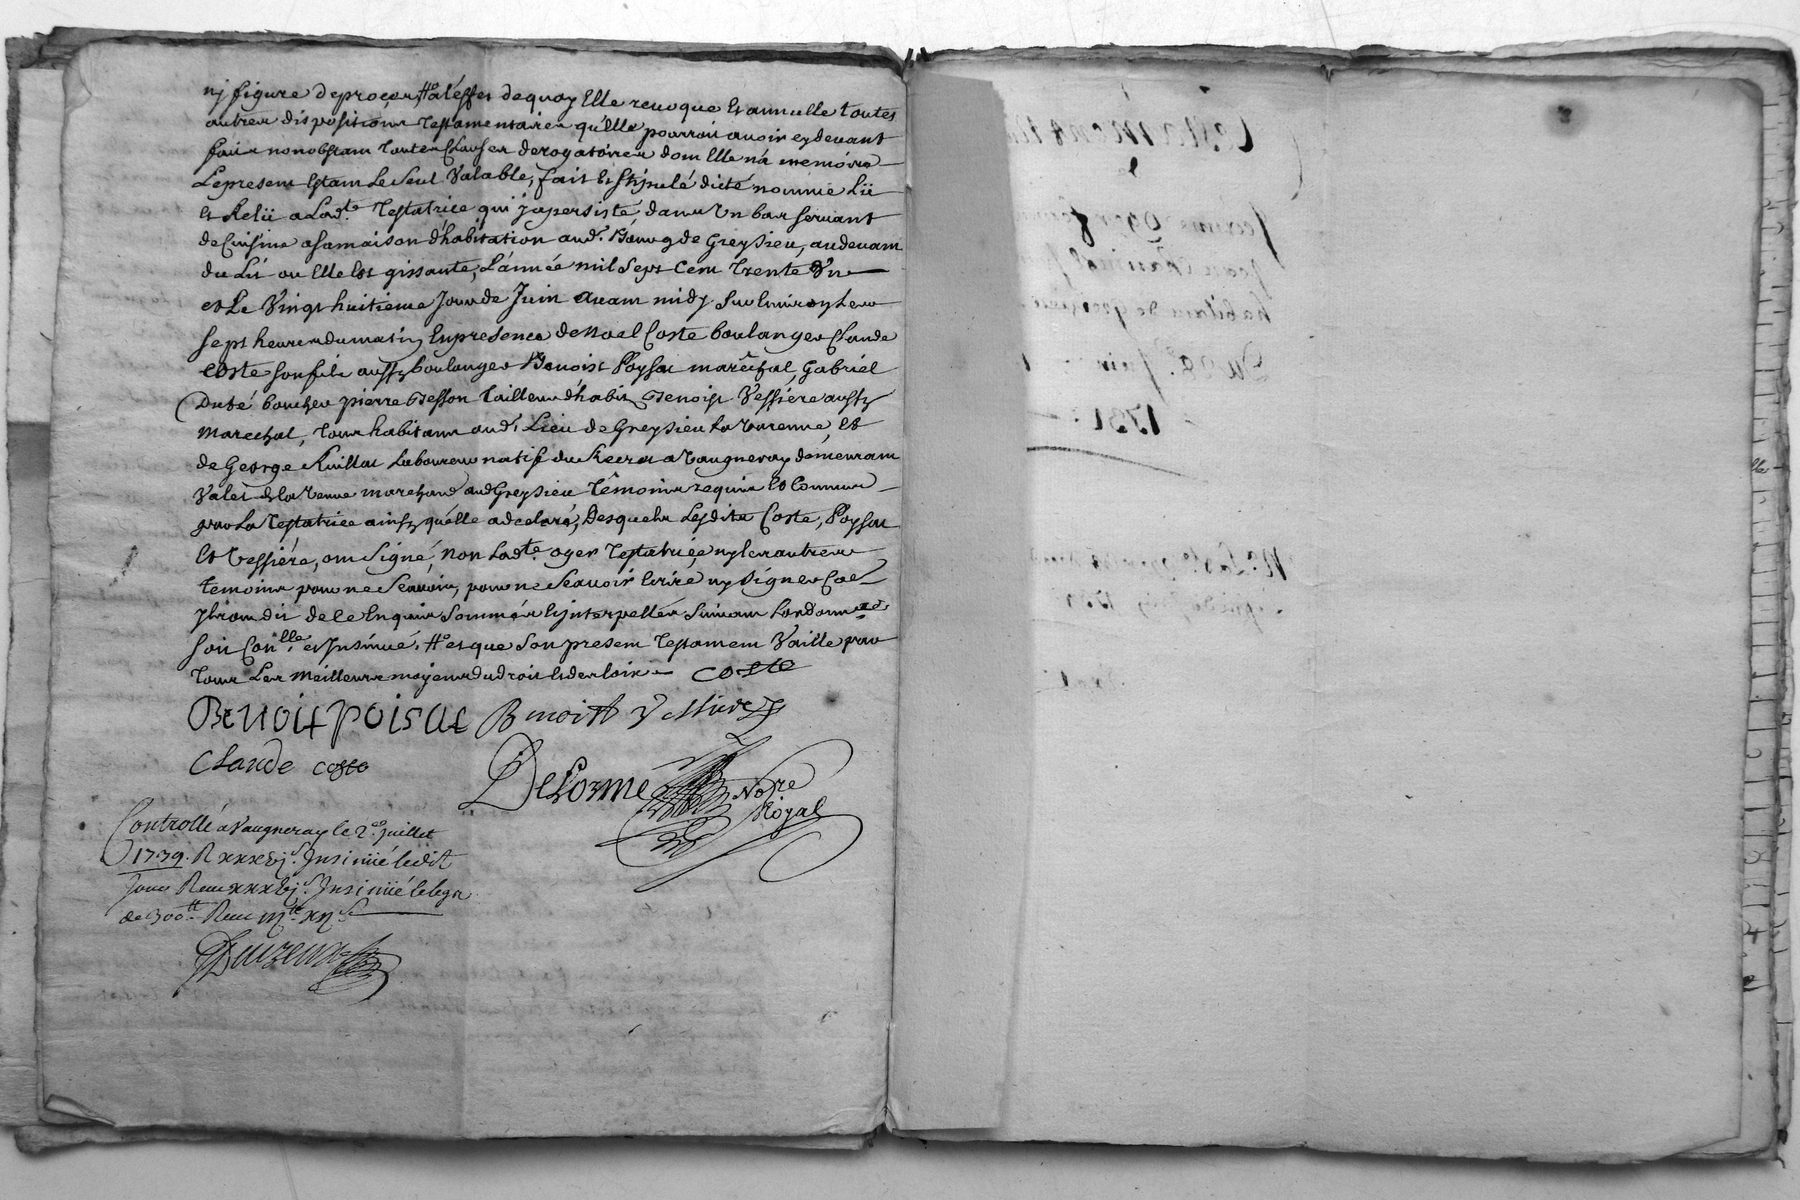 nj figure de procer # a l'effet de quoy Elle revoque Et annulle toutes
autres dispositions Testamentaires qu'Elle pourroit avoir cy devant
fait nonobstant toutes Clauses derogatoires dont Elle n'a memoire
Le present Estant Le Seul Valable, fait Et stipulé dicté nommé Lü
Et Relü a Lad.te Testatrice qui y a persisté, dans Un bas servant
de Cuisine a sa maison d'habitation aud. Bourg de Greysieu, au devant
du Lit ou Elle Est gissante, L'année mil Sept Cent Trente Un
et Le Vingt huitieme Jour de Juin avant midy Sur Environ Les
sept heures du matin En presence de Noel Coste boulanger Claude
Coste son fils aussy boulanger Benoist Poysat maréchal, Gabriel
Dubé boucher pierre Besson Tailleur d'habits Benoist Vessiere aussy
marechal, tous habitans aud. Lieu de Greysieu La Varenne, Et
de George Ruillat Laboureur natif du a Vaugneray demeurant
Valet de la Veuve marchand aud Greysieu Témoins requis Et Connus
par La Testatrice ainsy qu'elle a declaré, Desquels Lesdits Coste, Poysat
Et Vessiére, ont Signé, non Lad.te oger Testatrice, ny les autres
temoins pour ne Scavoir, pour ne Scavoir Ecrire ny Signer Co
ont dit de ce Enquis Sommés Et interpellés Suivant L'ordonn.ce
Soit Con.lle et Insinué. # et que Son present Testament Vaille par
Tous Les meilleurs moyens du droit Et des loix Coste
Benoit poisat Benoitt Vessiere
Claude coste
Delorme No.re
Royal
Controllé a Vaugneray le 2.e Juillet
1739. R xxxvj.s Insinüé ledit
Jour Receu xxxvj.s Insinüé le legs
de 300.tt Receu
1731